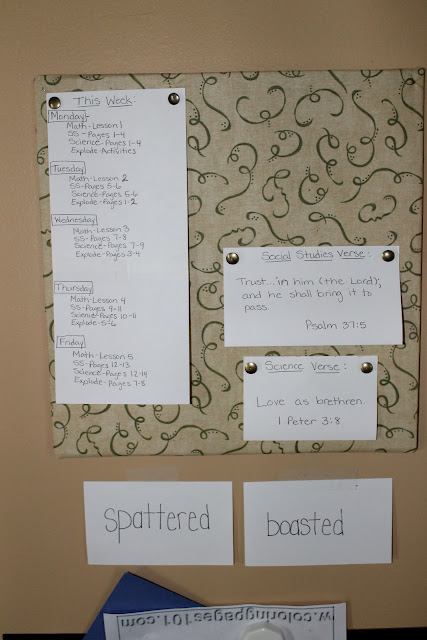 This Week:
Monday-
Math-Lesson 1
SS-Pages 1-4
Science-Pages 1-4
Explode-Activities
Tuesday
Math-Lesson 2
SS-Pages 5-6
Science-Pages 5-6
Explode-Pages 1-2
Wednesday
Math-Lesson 3
SS-Pages 7-8
Science-Pages 7-9
Explode-Pages 3-4
Thursday
Math-Lesson 4
SS-Pages 9-11
Science-Pages 10-11
Explode-5-6
Friday
Math-Lesson 5
SS-Pages 12-13
Science-Pages 12-14
Explode-Pages 7-8
Social Studies Verse:
Trust...in him (the Lord);
and he shall bring it to
pass.
Psalm 37:5
Science Verse:
Love as brethren.
1 Peter 3:8
spattered
boasted
w.coloringpages101.com